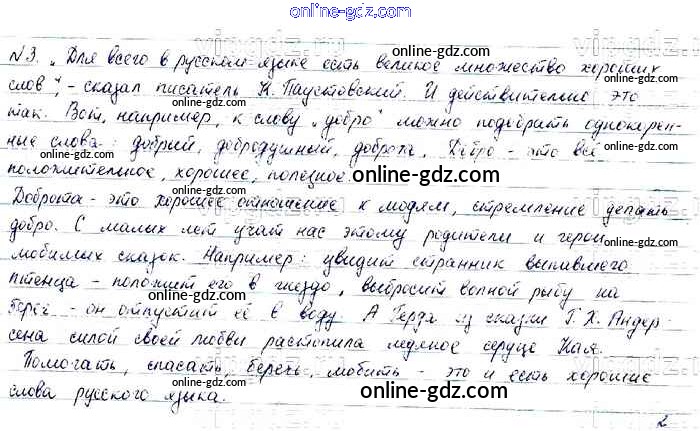 online-gdz.com
N3. „Для всего в русском языке есть великое множество хороших
online-gdz.com
слов", - сказал писатель К. Паустовский. И действительно это
так. Вот, например, к слову „добро" можно подобрать однокорен-
ные слова: добрый, добродушный, доброта. Добро - это всё
положительное, хорошее, полезное.
online-gdz.com
Доброта - это хорошее отношение к людям, стремление делать
добро. С малых лет учат нас этому родители и герои
любимых сказок. Например: увидит странник выпавшего
online-gdz.com
птенца - положит его в гнездо, выбросит волной рыбу на
берег - он отпустит её в воду. А Герда из сказки Г. Х. Андер
сена силой своей любви растопила ледяное сердце Кая.
Помогать, спасать, беречь, любить - это и есть хорошие
слова русского языка.
online-gdz.com
2